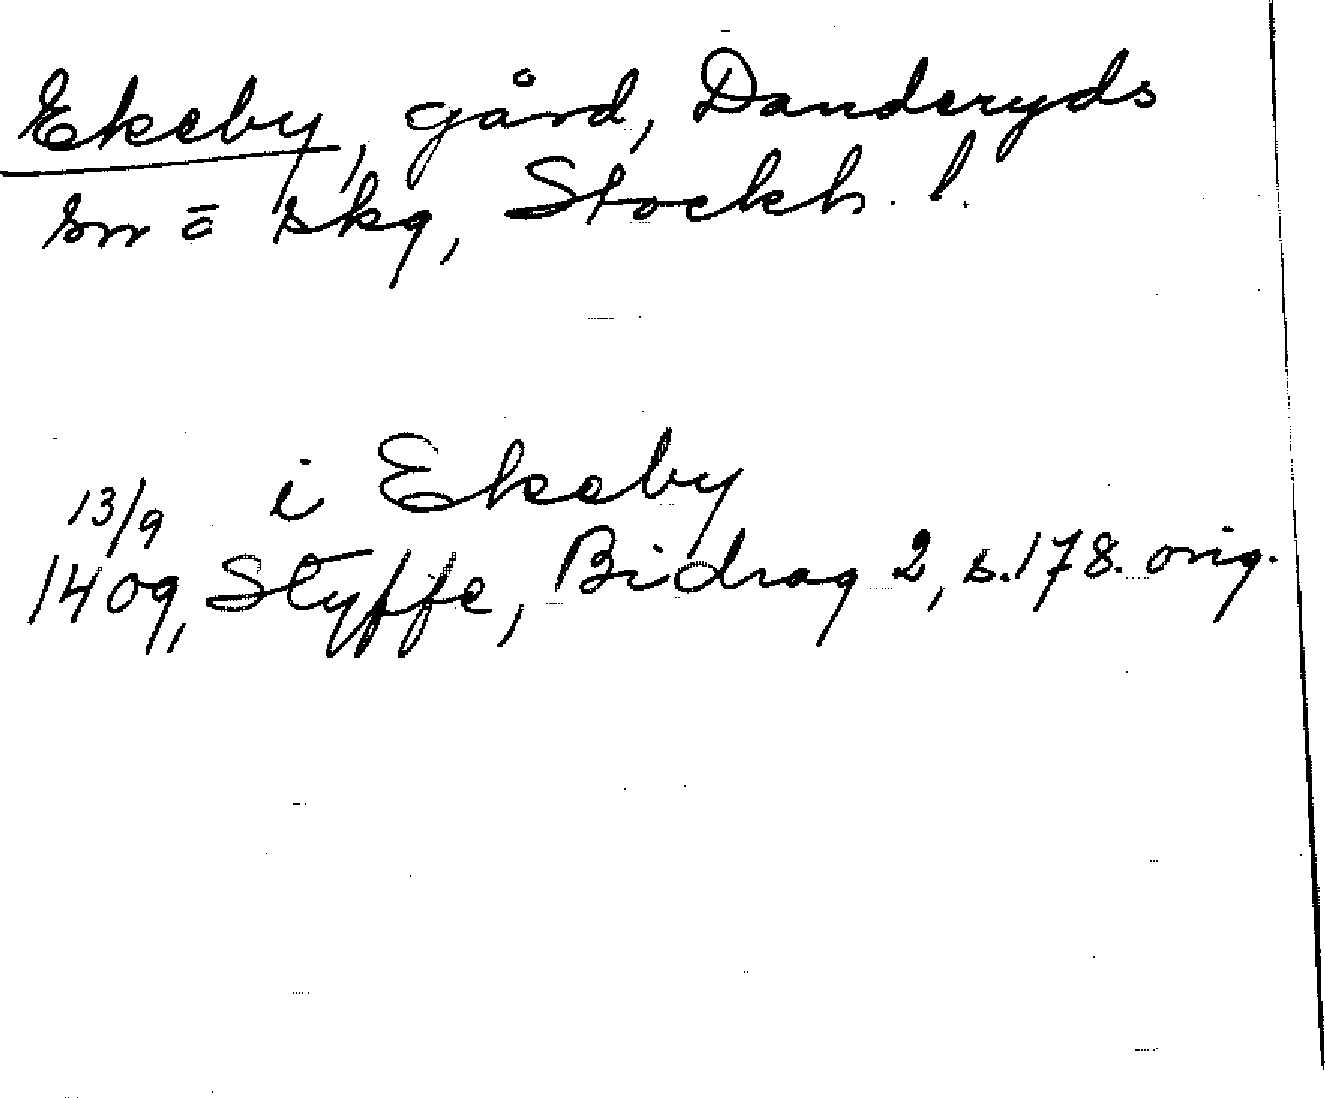 Ekeby, gård, Danderyds
sn o̅ skg, Stockh. l.
i Ekeby
13/9
1409, Styffe, Bidrag 2, s. 178. orig.